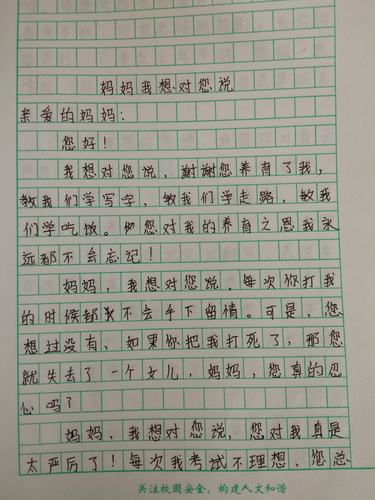 妈妈我想对您说
亲爱的妈妈:
您好!
我想对您说,谢谢您养育了我,
教我们学写字,教我们学走路,教我
们学吃饭。您对我的养育之恩我永
远都不会忘记!
妈妈,我想对您说。每次你打我
的时候都不会手下留情。可是,您
想过没有、如果你把我打死了,那您
就失去了一个女儿,妈妈,您真的忍
心吗?
妈妈,我想对您说,您对我真是
太严厉了!每次我考试不理想,您总
关注校园安全,构建人文和谐